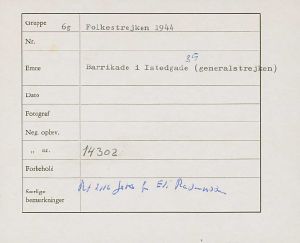 Gruppe 6g Folkestrejken 1944
Nr.
39
Emne Barrikade i Istedgade (generalstrejken)
Dato
Fotograf
Neg. opbev.
„ nr. 14302
Forbehold
Særlige
bemærkninger